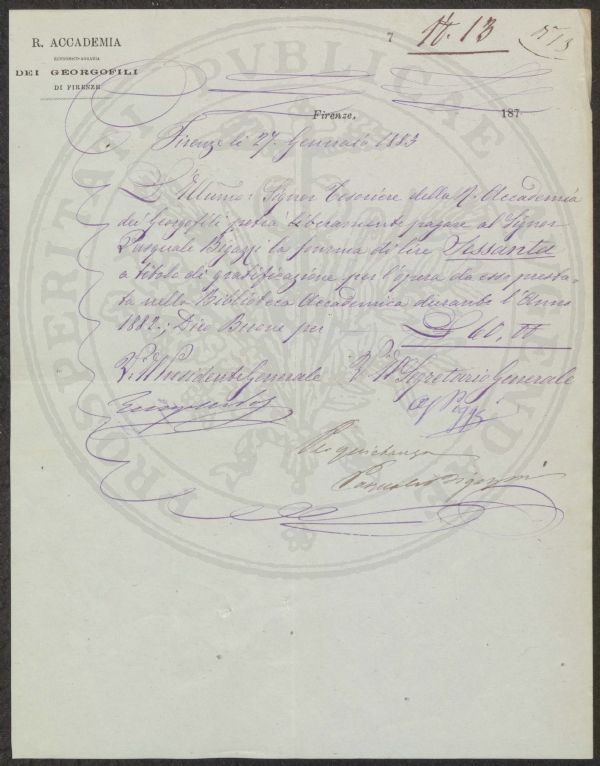 R. ACCADEMIA
ECONOMICO-AGRARIA
DEI GEORGOFILI
DI FIRENZE
7 N. 13
N 13
Firenze, 187
Firenze li 27. Gennaio 1883
L'Illumo: Signor Tesoriere della R. Accademia
dei Georgofili potrà liberamente pagare al Signor
Pasquale Bigazzi la somma di lire Sessanta
a titolo di gratificazione per l'opera da esso presta-
ta nella Biblioteca Accademica durante l'Anno
1882.; Dico Buone per £ 60.
V. Il Presidente Generale V. Il Segretario Generale
Per quietanza
Pasquale Bigazzi
PROSPERITATI PVBLICAE AVGENDAE